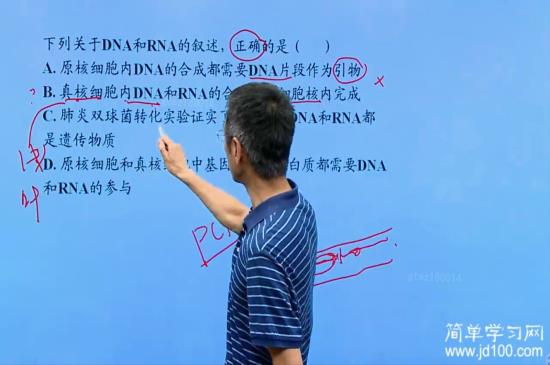 下列关于DNA和RNA的叙述，正确的是（ ）
A. 原核细胞内DNA的合成都需要DNA片段作为引物
B. 真核细胞内DNA和RNA的合 细胞核内完成
C. 肺炎双球菌转化实验证实了 DNA和RNA都
是遗传物质
D. 原核细胞和真核细胞中基因 白质都需要DNA
和RNA的参与
简单学习网
www.jd100.com